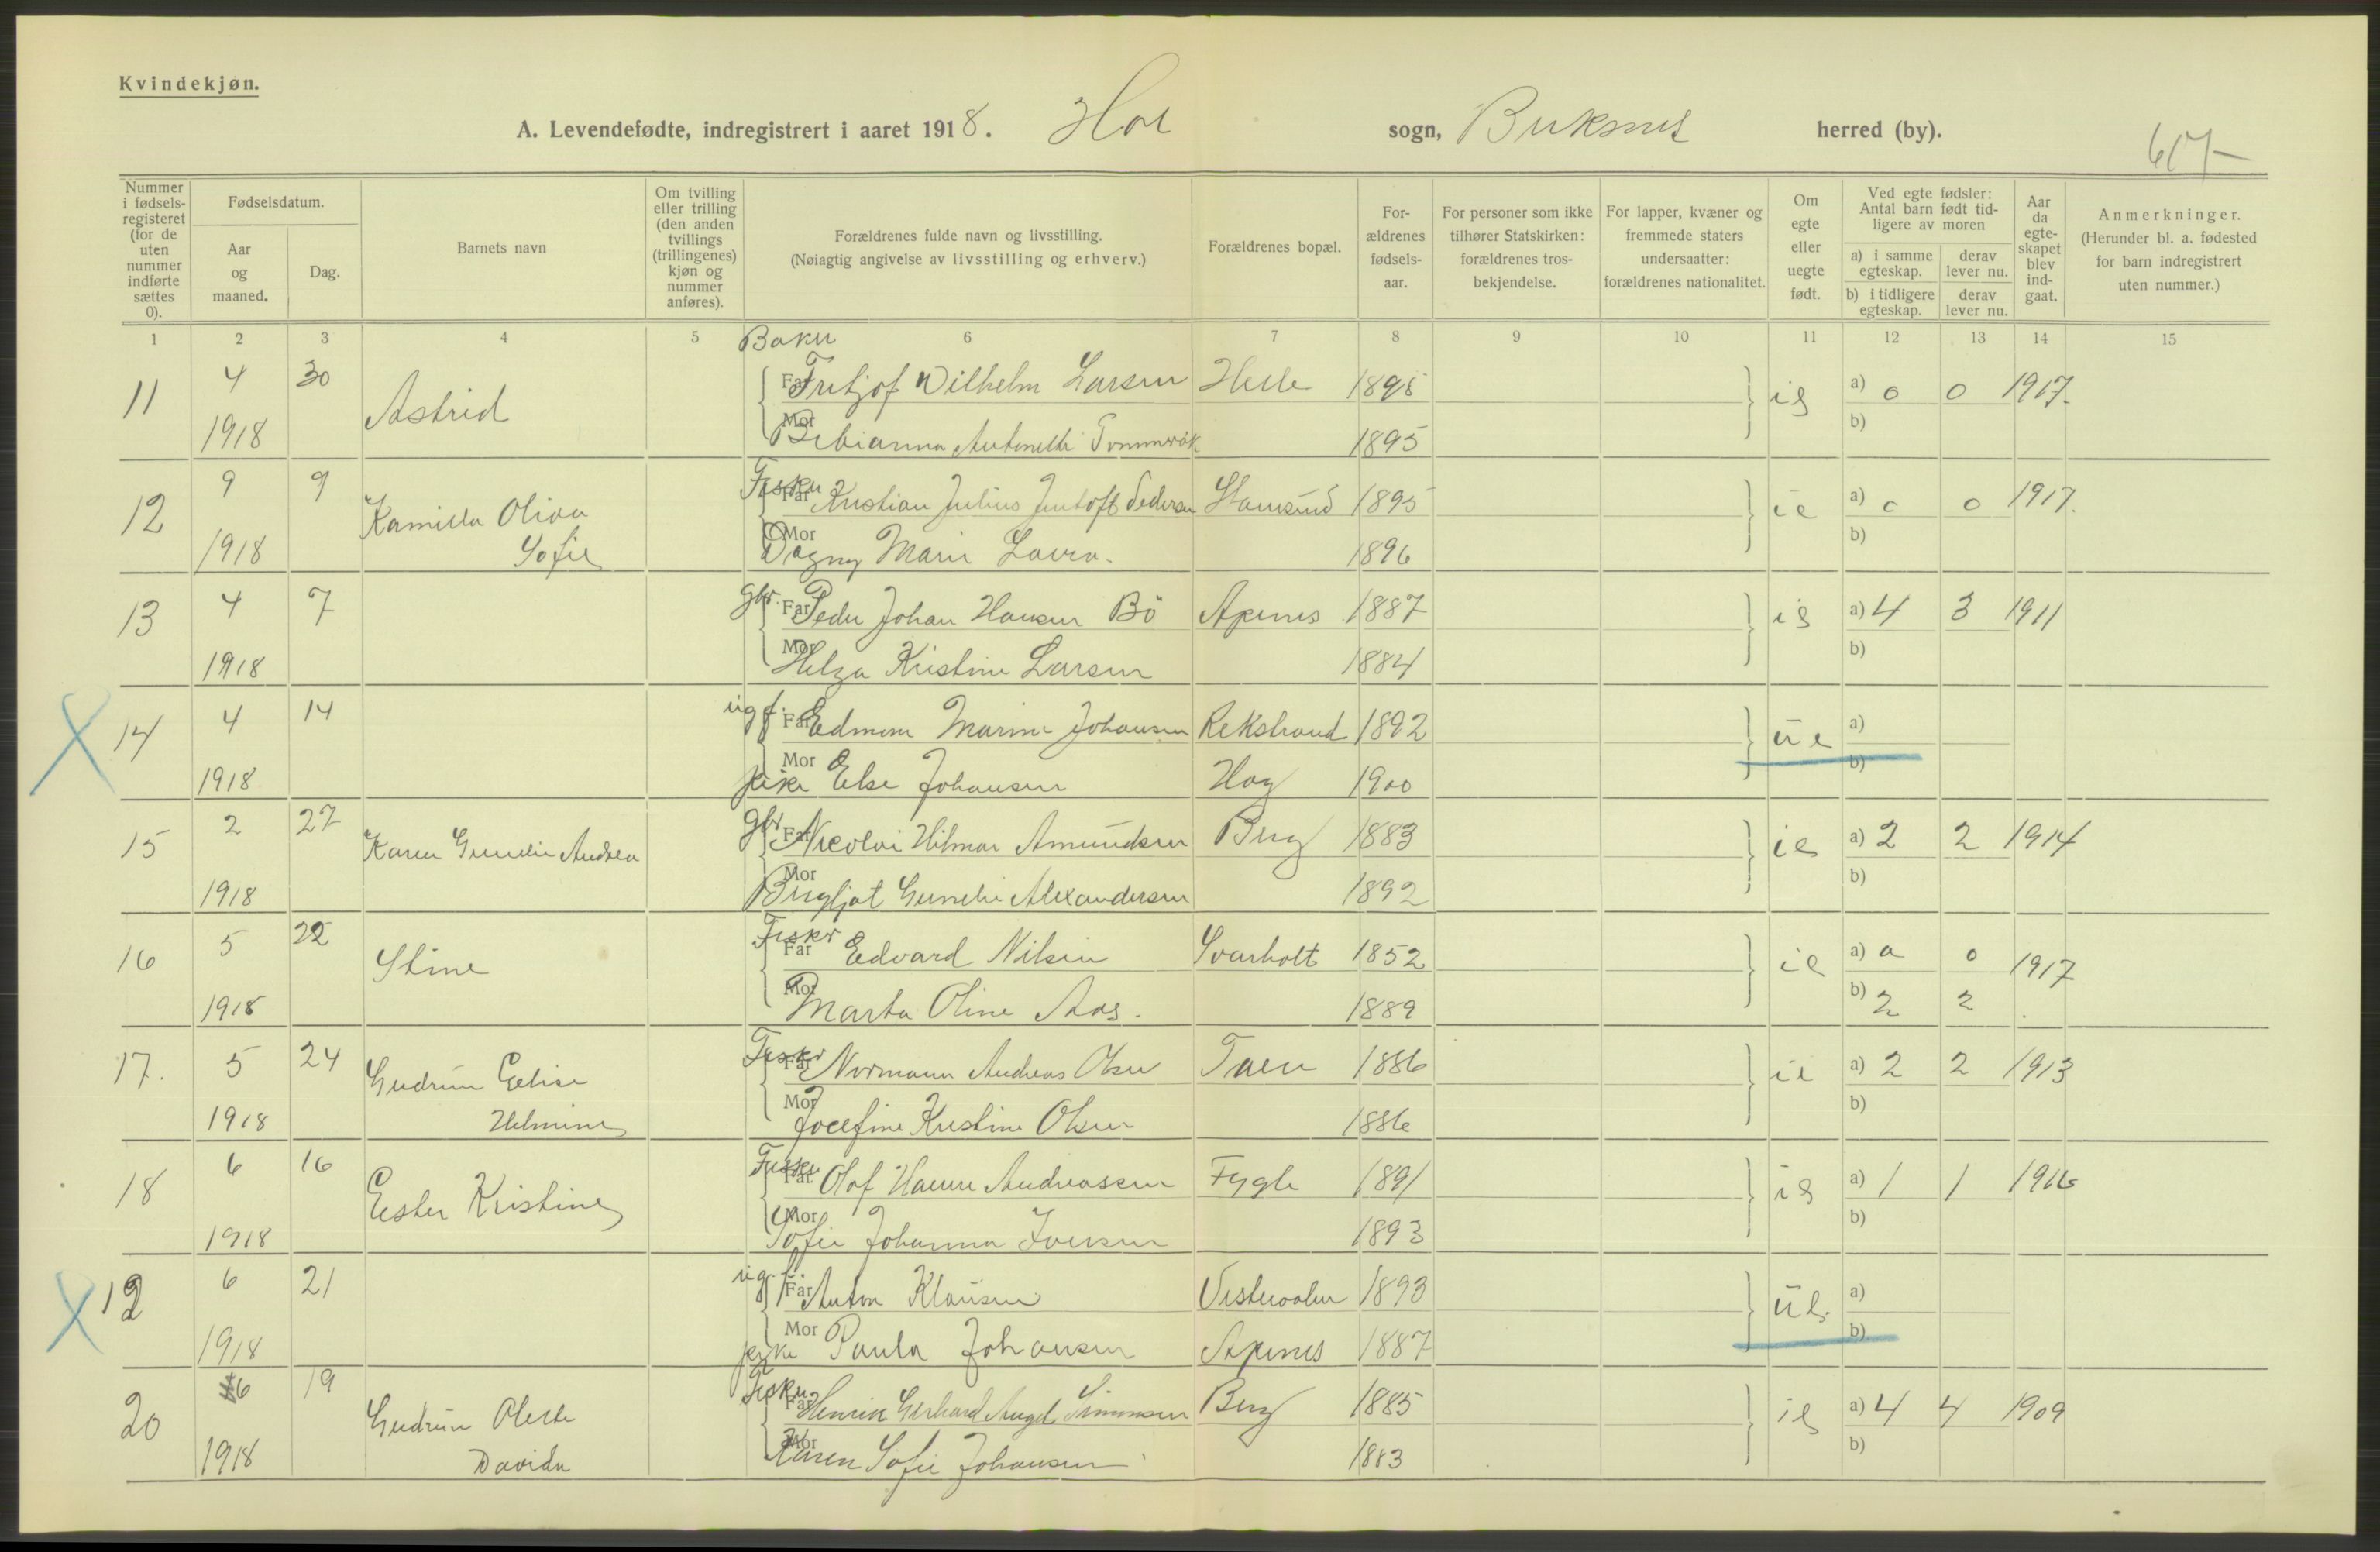 Kvindekjøn.
A. Levendefødte, indregistrert i aaret 1918. Hol sogn, Buksnes herred (by).
Nummer i fødsels-registeret (for de uten nummer indførte sættes 0).
Fødselsdatum.
Aar og maaned.
Dag.
Barnets navn
Om tvilling eller trilling (den anden tvillings (trillingenes) kjøn og nummer anføres).
Forældrenes fulde navn og livsstilling.
(Nøiagtig angivelse av livsstilling og erhverv.)
Forældrenes bopæl.
For-ældrenes fødsels-aar.
For personer som ikke tilhører Statskirken: forældrenes tros-bekjendelse.
For lapper, kvæner og fremmede staters undersaatter: forældrenes nationalitet.
Om egte eller uegte født.
Ved egte fødsler: Antal barn født tid-ligere av moren
a) i samme egteskap.
derav lever nu.
b) i tidligere egteskap.
derav lever nu.
Aar da egte-skapet blev ind-gaat.
Anmerkninger.
(Herunder bl. a. fødested for barn indregistrert uten nummer.)
1 2 3 4 5 6 7 8 9 10 11 12 13 14 15
Baker
11 4 30 Astrid Far Fritjof Wilhelm Larsen Helle 1895 a) 0 0 1917.
1918 Mor Antonette 1895 b)
Fisker
12 9 9 Kamilla Oliva Far Kristian Julius Pedersen Stamsund 1895 ie a) 0 0 1917.
1918 Sofie Mor Dagny Marie Lovra. 1896 b)
gbr.
13 4 7 Far Peder Johan Hansen Bö Apenes 1887 a) 4 3 1911
1918 Mor Helga Kristine Larsen 1884 b)
ugf.
14 4 14 Far Johansen Rekstrand 1892 ue a)
1918 Mor pike Else Johansen Hag 1900 b)
gbr
15 2 27 Karen Gunelie Andrea Far Nicolai Hilmar Amundsen Berg 1883 ie a) 2 2 1914
1918 Mor Bergljot Gunelie Alexandersen 1892 b)
Fisker
16 5 22 Stine Far Edvard Nilsen Svarholt 1852 ie a) 0 0 1917
1918 Mor Marta Oline Aas. 1889 b) 2 2
Fisker
17. 5 24 Gudrun Elise Far Normann Andreas Olsen Taen 1886 ie a) 2 2 1913
1918 Helmine Mor Josefine Kristine Olsen 1886 b)
Fisker
18 6 16 Ester Kristine Far Olof Andreassen Fygle 1891 a) 1 1 1916
1918 Mor Sofie Johanna Iversen 1893 b)
ug. f.
19 6 21 Far Anton Klausen Vesteraalen 1893 ue. a)
1918 Mor pike Paula Johansen Apenes 1887 b)
Fisker
20 6 19 Gudrun Far Henrik Gerhard Angel Simonsen Berg 1885 a) 4 4 1909
1918 Davida Mor Karen Sofie Johansen 1883 b)